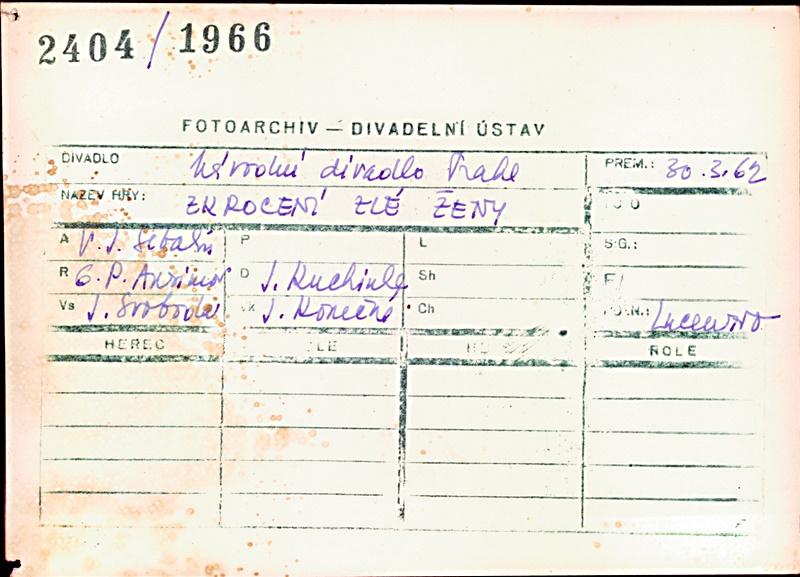 2404/1966
FOTOARCHIV — DIVADELNÍ ÚSTAV
DIVADLO Národní divadlo Praha PREM.: 30.3.62
NÁZEV HRY: ZKROCENÍ ZLÉ ŽENY FOTO
A V. J. P L SIG.:
R G. P. Anisimov D J. Kuchinka Sh
Vs J. Svoboda Vk J. Konečná Ch
HEREC ROLE ROLE